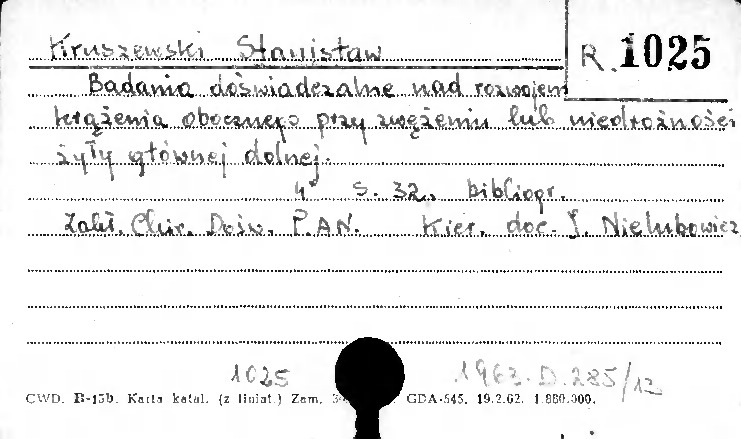 Kruszewski Stanisław
R. 1025
Badania doświadczalne nad rozwojem
krążenia obocznego przy zwężeniu lub niedrożności
żyły głównej dolnej.
4° s. 32, bibliogr.
Zakł. Chir. Dośw. P.AN. Kier. doc. J. Nielubowicz
1025 1963.D.285/12
CWD. B-13b. Karta katal. (z liniat.) Zam. GDA-545. 19.2.62. 1.880.000.